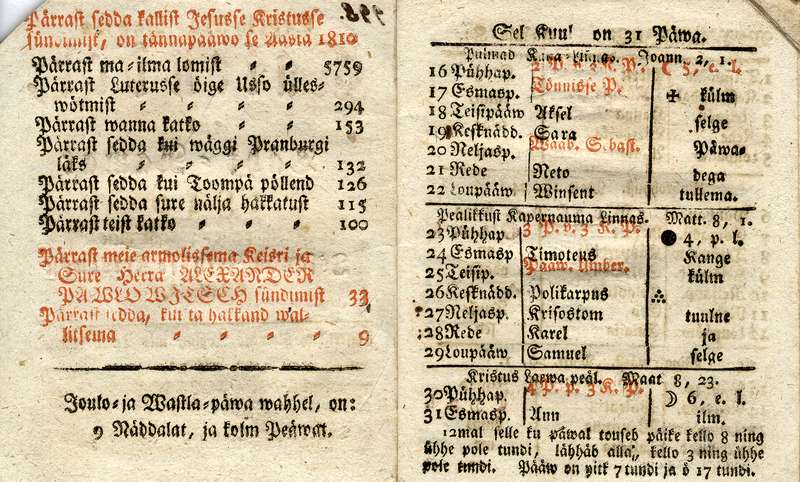 Pärrast sedda kallist Jesusse Kristusse
sündimist, on tännapääwo se Aasta 1810
Pärrast ma-ilma lomist 5759
Pärrast Luterusse öige Usso ülles-
wötmist 294
Pärrast wanna katko 153
Pärrast sedda kui wäggi Pranburgi
läks 132
Pärrast sedda kui Toompä pöllend 126
Pärrast sedda sure nälja hakkatust 115
Pärrast teist katko 100
Pärrast meie armolissema Keisri ja
Sure Herra ALEXANDER
PAWLOWITSCH sündimist 33
Pärrast sedda, kui ta hakkand wal-
litsema 9
Joulo-ja Wastla-päwa wahhel, on:
9 Näddalat, ja kolm Peäwat.
Sel Kuul on 31 Päwa.
Pulmad Kana-linnas. Joann. 2, 1.
16 Pühhap. 2 P. p. 3 K. P. ☾ 5, e. l.
17 Esmasp. Tönnisse P. ✠ külm
18 Teisipääw Aksel selge
19 Kesknädd. Sara
20 Neljasp. Waab. Sebast. Päwa-
21 Rede Neto dega
22 Loupääw Winsent tullema.
Pealikkust Kapernauma Linnas. Matt. 8, 1.
23 Pühhap. 3 P. p. 3 K. P. ● 4, p. l.
24 Esmasp Timoteus Kange
25 Teisip. Pääw. külm
26 Kesknädd. Polikarpus
27 Neljasp. Krisostom tuulne
28 Rede Karel ja
29 Loupääw Samuel selge
Kristus Laewa peäl. Maat 8, 23.
30 Pühhap. 4 P. p. 3 K. P. ☽ 6, e. l.
31 Esmasp. Ann ilm.
12mal selle ku päwal touseb päike kello 8 ning
ühhe pole tundi, lähhäb alla, kello 3 ning ühhe
pole tundi. Pääw on pitk 7 tundi ja ö 17 tundi.